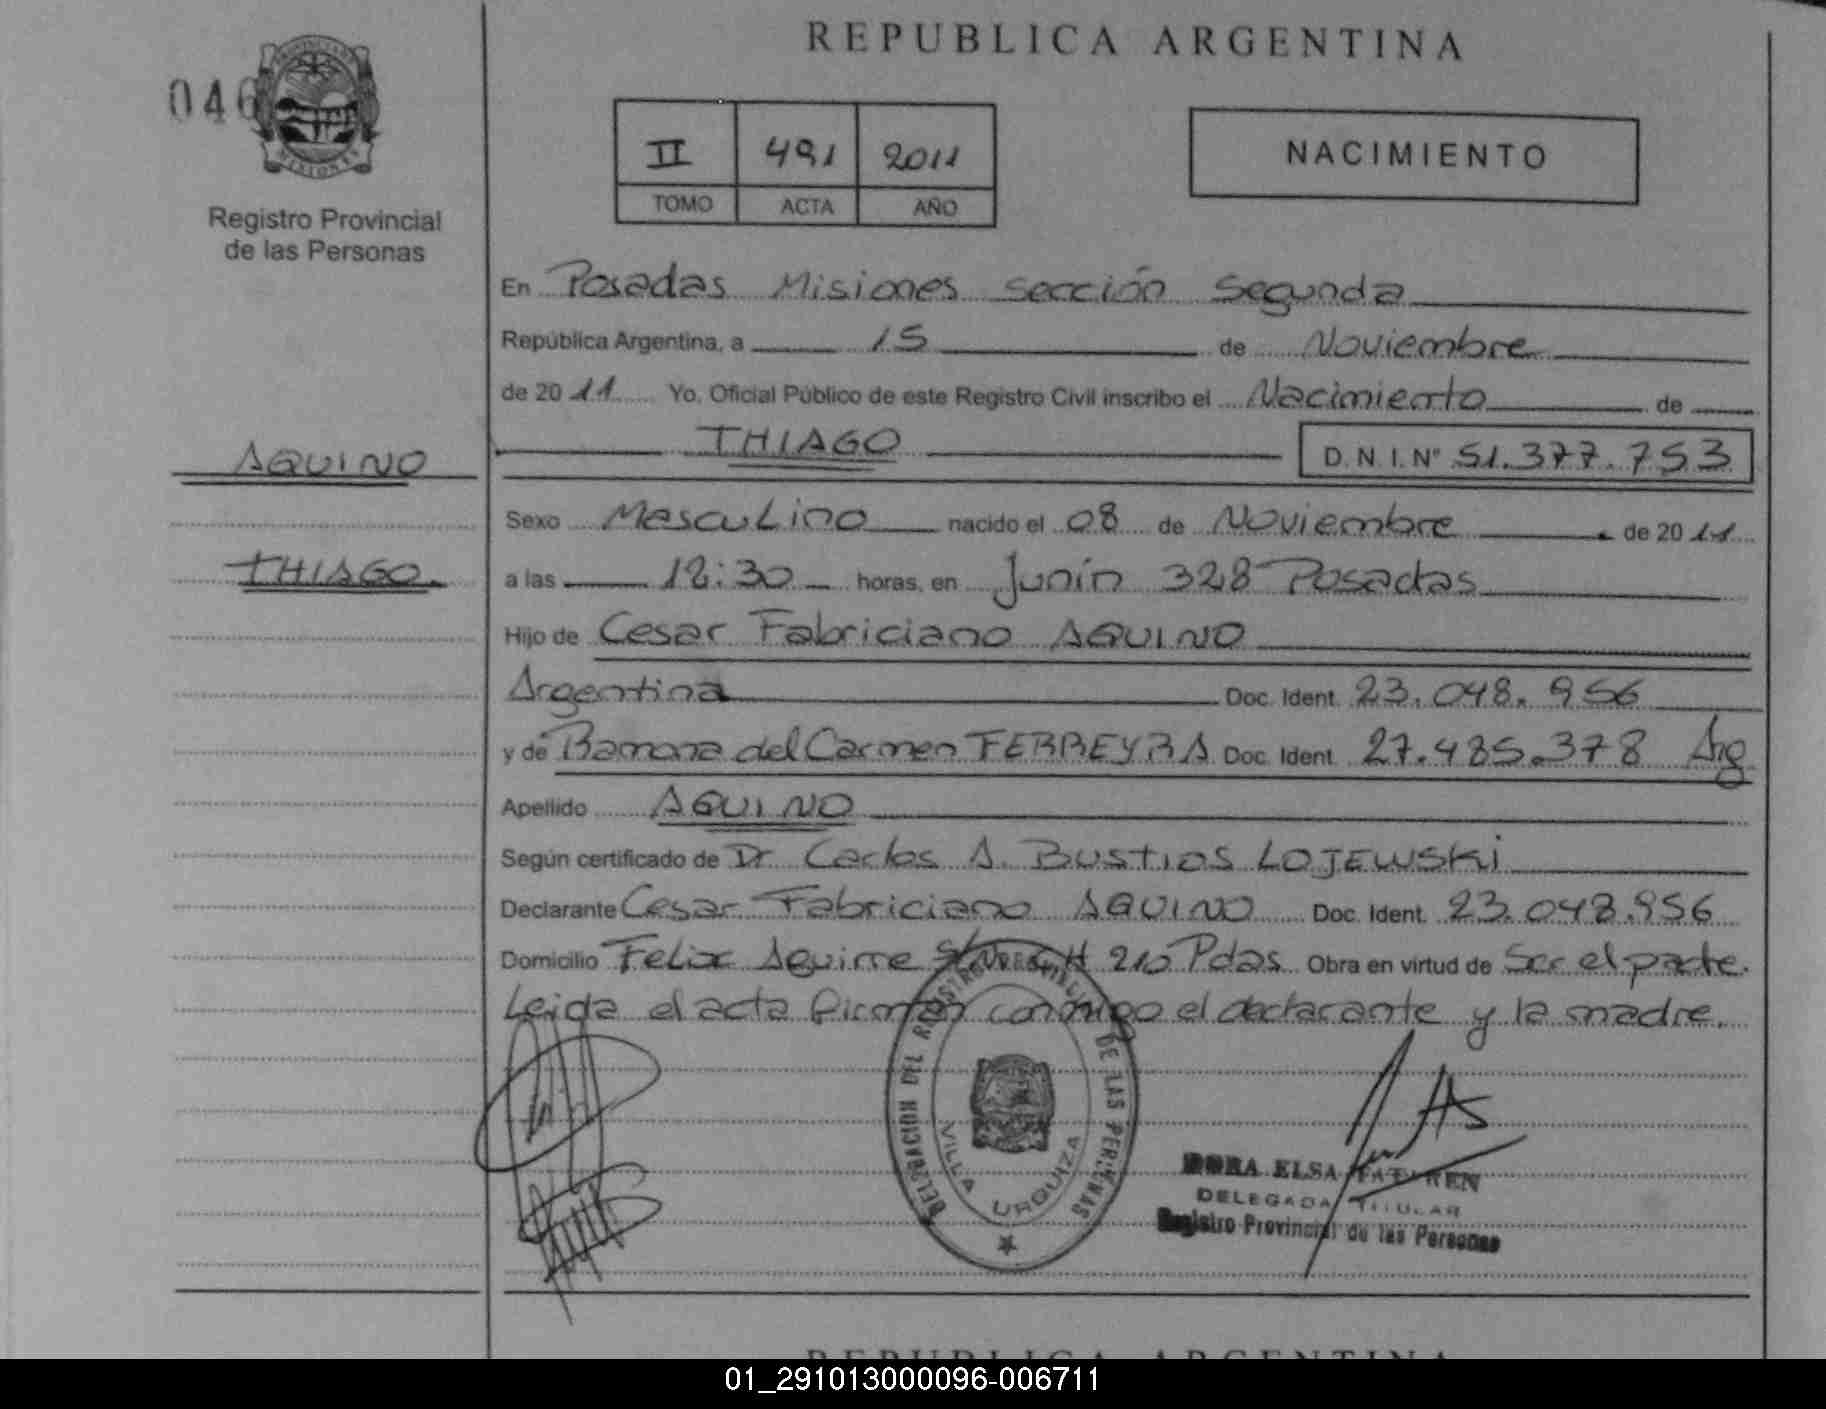 REPUBLICA ARGENTINA
046
PROVINCIA DE MISIONES
Registro Provincial
de las Personas
II 491 2011
TOMO ACTA AÑO
NACIMIENTO
En Posadas Misiones Sección Segunda
República Argentina, a 15 de Noviembre
de 2011 Yo, Oficial Público de este Registro Civil inscribo el Nacimiento de
THIAGO D.N.I.Nº 51.377.753
AQUINO
THIAGO
Sexo Masculino nacido el 08 de Noviembre de 2011
a las 12:30 horas, en Junín 328 Posadas
Hijo de Cesar Fabriciano AQUINO
Argentina Doc. Ident. 23.048.956
y de Ramona del Carmen FERREYRA Doc. Ident. 27.485.378 Arg
Apellido AQUINO
Según certificado de Dr Carlos A. Bustios LOJEWSKi
Declarante Cesar Fabriciano AQUINO Doc. Ident. 23.048.956
Domicilio Felix Aguirre S/Nº CH 210 Pdas Obra en virtud de Ser el padre.
Leida el acta firman conmigo el declarante y la madre.
DELEGACION DEL REGISTRO PROVINCIAL DE LAS PERSONAS
VILLA URQUIZA
DORA ELSA
DELEGADA TITULAR
Registro Provincial de las Personas
REPUBLICA ARGENTINA
01_291013000096-006711